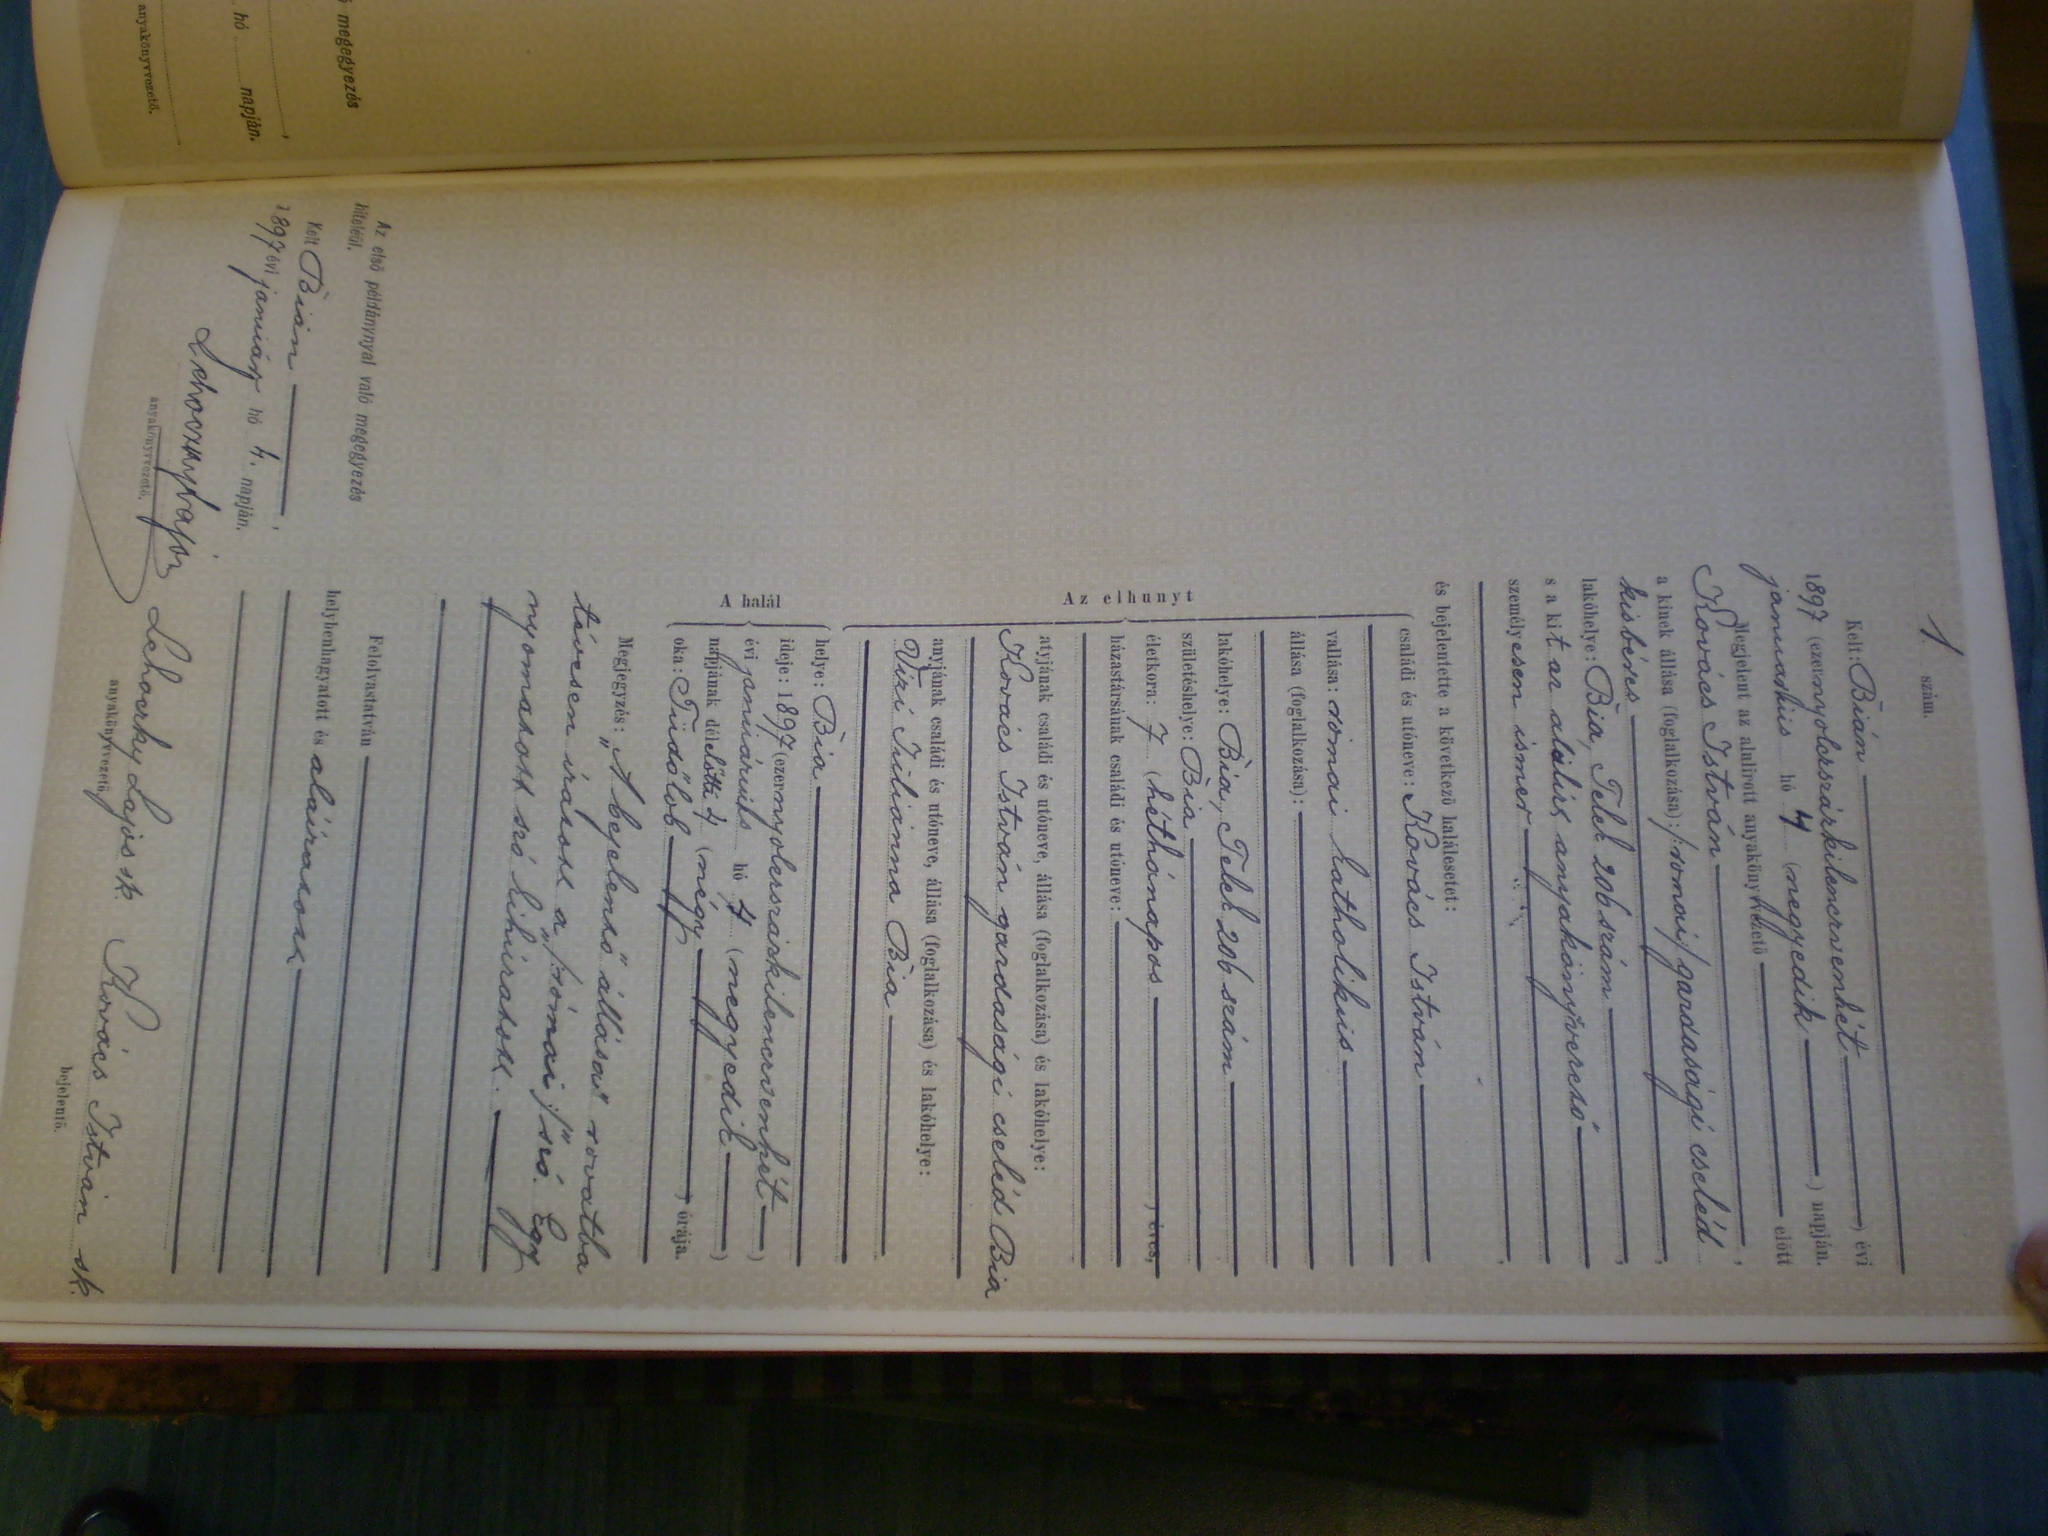 ő megegyezés
hó napján.
anyakönyvvezető.
1. szám.
Kelt: Bián
1897 (ezernyolcszázkilenczvenhét ) évi
januárius hó 4 (negyedik ) napján.
Megjelent az alulirott anyakönyvvezető előtt
Kovács István,
a kinek állása (foglalkozása): /:római:/ gazdasági cseléd
kisbéres,
lakóhelye: Bia, Telek 206 szám,
s a kit az alulirt anyakönyvvezető
személyesen ismer,
és bejelentette a következő halálesetet:
Az elhunyt
családi és utóneve: Kovács István
vallása: római katholikus
állása (foglalkozása):
lakóhelye: Bia, Telek 206 szám
születéshelye: Bia
életkora: 7 (héthónapos ) éves,
házastársának családi és utóneve:
atyjának családi és utóneve, állása (foglalkozása) és lakóhelye:
Kovács István gazdasági cseléd Bia
anyjának családi és utóneve, állása (foglalkozása) és lakóhelye:
Viri Juliánna Bia
A halál
helye: Bia
ideje: 1897 (ezernyolcszázkilenczvenhét )
évi januárius hó 4 (negyedik )
napjának délelőtti 4 (négy ) órája.
oka: Tüdőlob
Megjegyzés: „A bejelentő" állása" rovatba
tévesen íratott a „/:római:/" szó. Egy
nyomatott szó kihúzatott.
Felolvastatván
helybenhagyatott és aláíratott
Lehoczky Lajos sk. Kovács István sk.
anyakönyvvezető bejelentő.
Az első példánynyal való megegyezés
hiteléül.
Kelt Bián,
1897 évi január hó 4. napján.
Lehoczky Lajos
anyakönyvvezető.